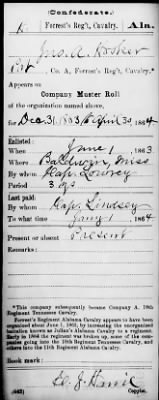 (Confederate.)
K Forrest's Reg't, Cavalry. Ala.
Jno. A. Hooker
Pvt, Co. A, Forrest's Reg't, Cavalry.
Appears on
Company Muster Roll
of the organization named above,
for Dec 31, 1863, to April 30, 1864
Enlisted:
When June 1, 1863
Where Baldwin, Miss
By whom Capt. Lowrey
Period 3 yrs
Last paid:
By whom Capt. Lindsey
To what time Jany 1, 1864
Present or absent Present
Remarks:
*This company subsequently became Company A, 18th
Regiment Tennessee Cavalry.
Forrest's Regiment Alabama Cavalry appears to have been
organized about June 1, 1863, by increasing the
battalion known as Julian's Alabama Cavalry to a regiment.
Early in 1864 the regiment was broken up, some of the com-
panies going into the 18th Regiment Tennessee Cavalry, and
others into the 11th Regiment Alabama Cavalry.
Book mark:
(642) Copyist.